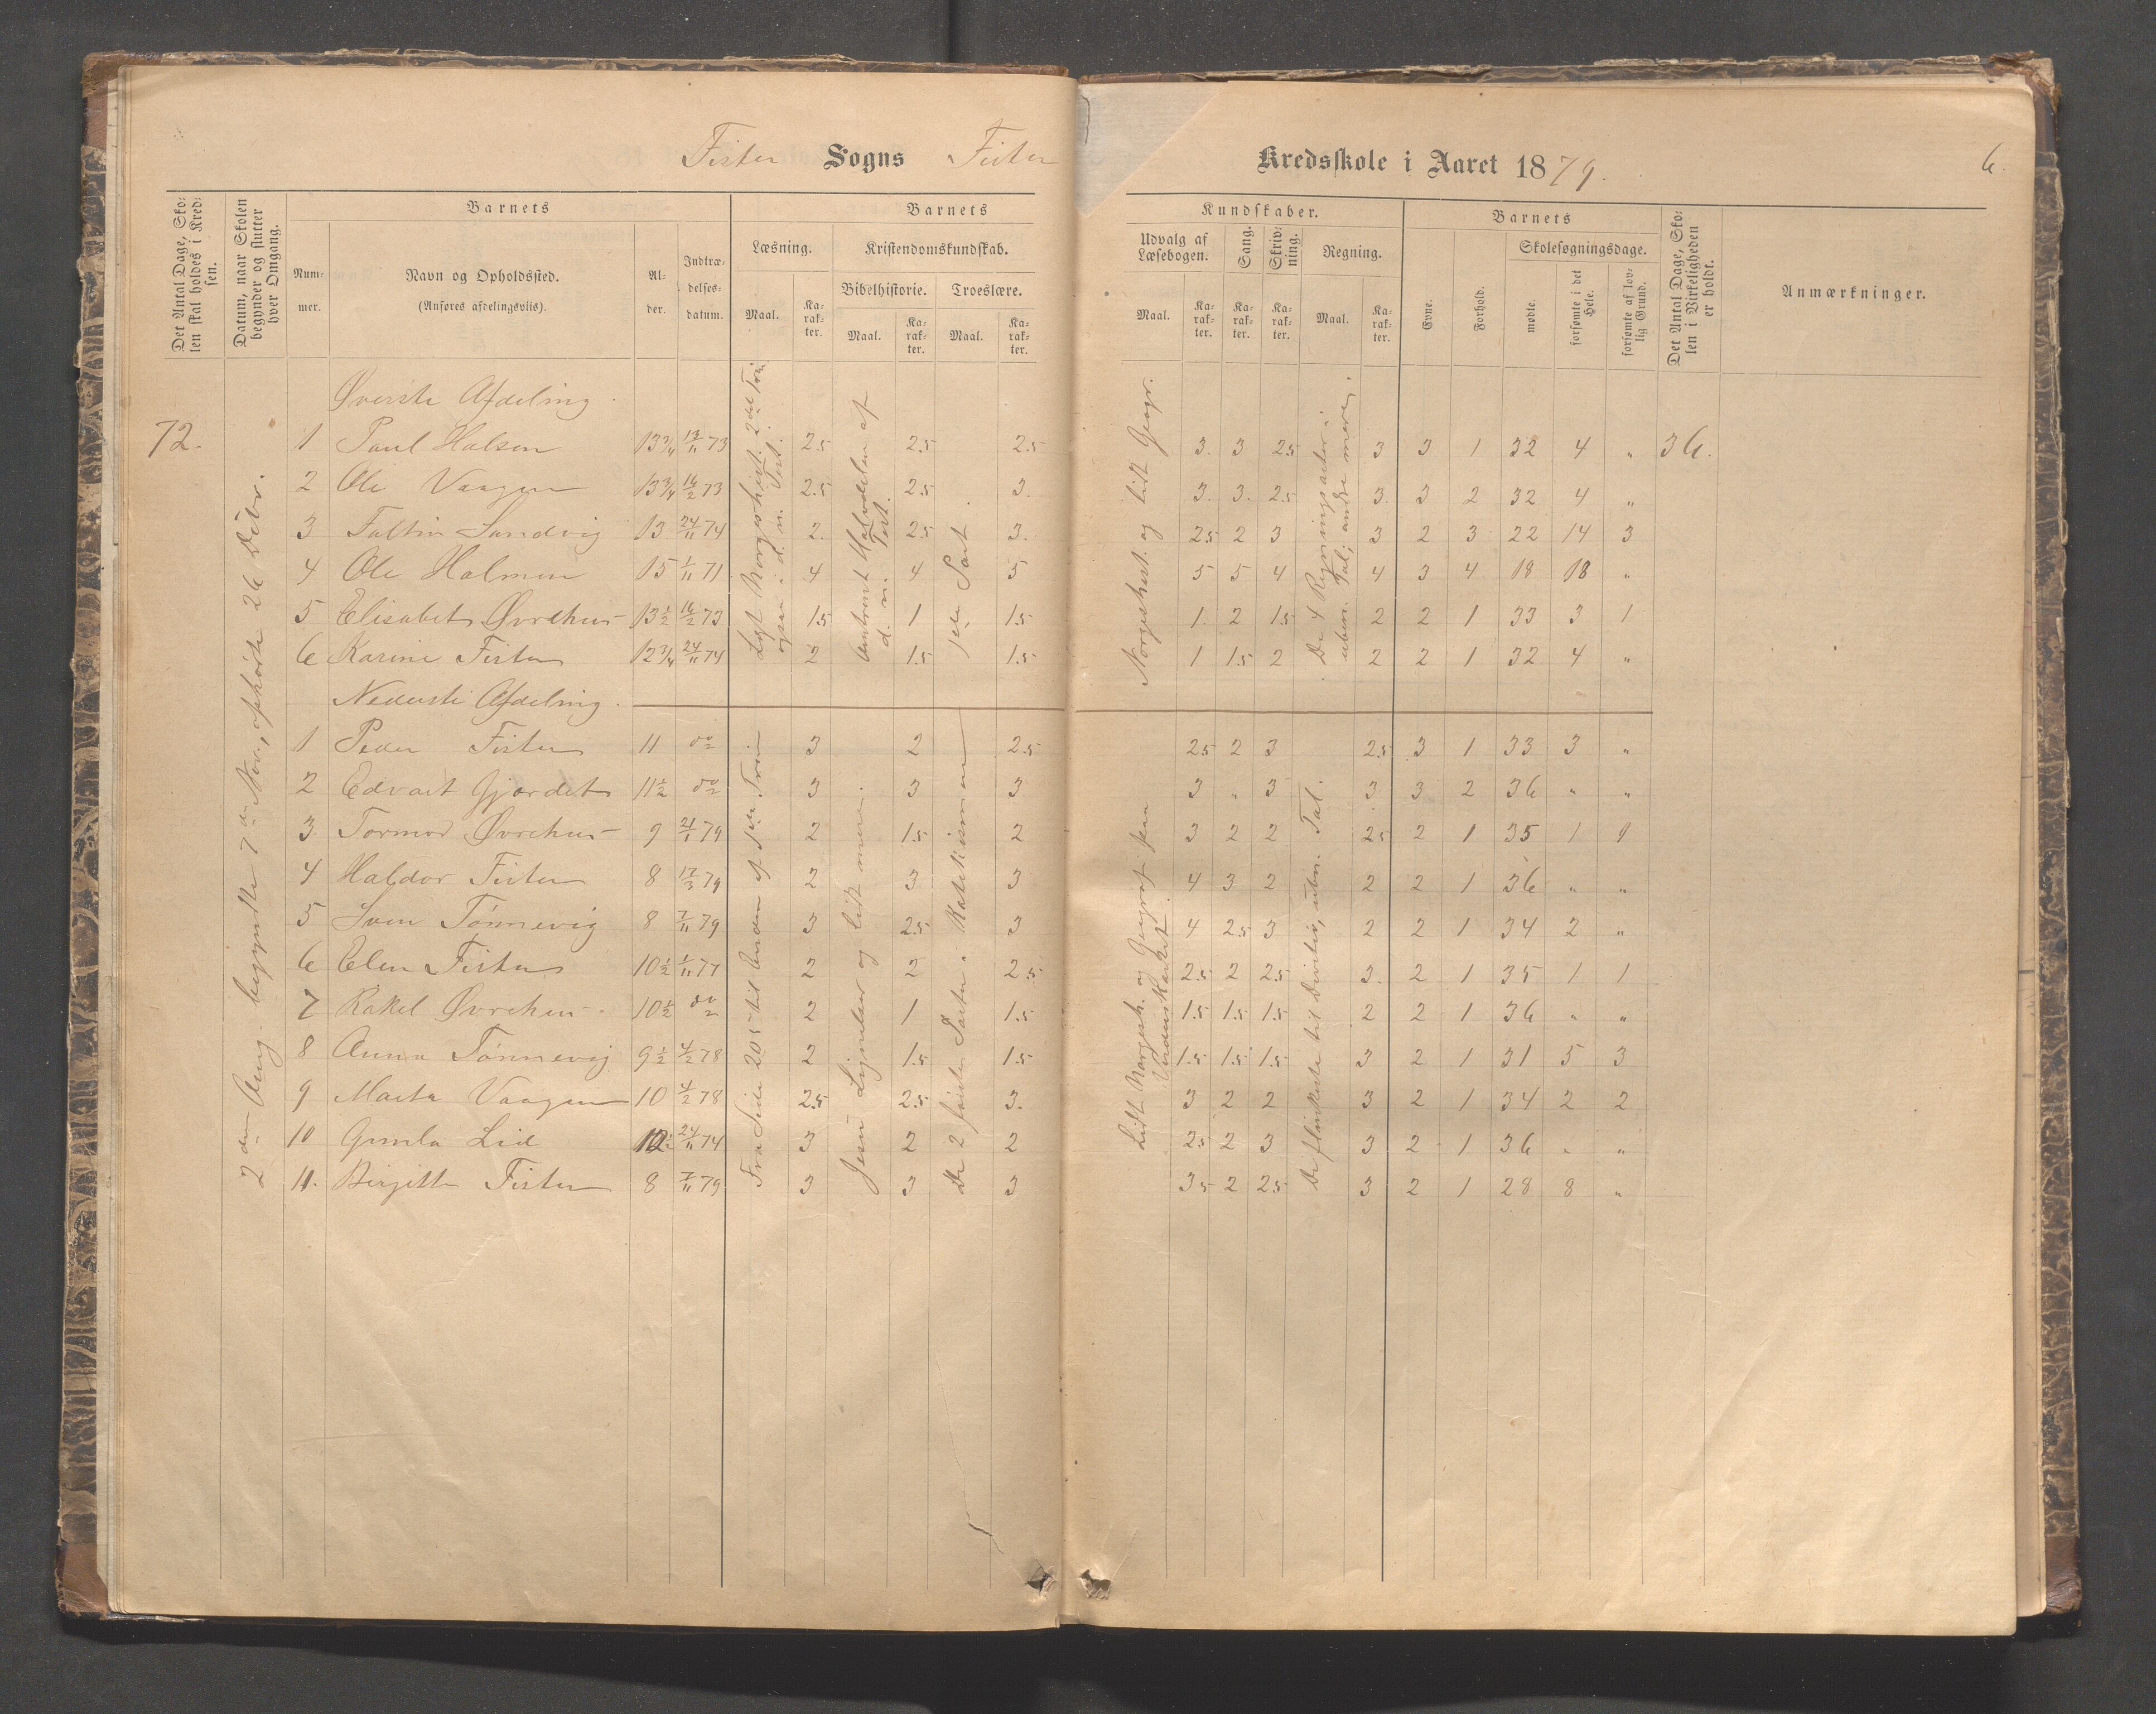 Fister Sogns Fister Kredsskole i Aaret 1879. 6.
Det Antal Dage, Sko-
len skal holdes i Kred-
sen.
Datum, naar Skolen
begynder og slutter
hver Omgang.
Barnets
Num-
mer.
Navn og Opholdssted.
(Anføres afdelingsviis).
Al-
der.
Indtræ-
delses-
datum.
Barnets
Læsning.
Maal.
Ka-
rak-
ter.
Kristendomskundskab.
Bibelhistorie.
Maal.
Ka-
rak-
ter.
Troeslære.
Maal.
Ka-
rak-
ter.
Kundskaber.
Udvalg af
Læsebogen.
Maal.
Ka-
rak-
ter.
Sang.
Ka-
rak-
ter.
Skriv-
ning.
Ka-
rak-
ter.
Regning.
Maal.
Ka-
rak-
ter.
Barnets
Evne.
Forhold.
Skolesøgningsdage.
mødte.
forsømte i det
Hele.
forsømte af lov-
lig Grund.
Det Antal Dage, Sko-
len i Virkeligheden
er holdt.
Anmærkninger.
72.
2den Omg. begyndte 7de Nov., ophørte 26 Decbr.
Øverste Afdeling.
Læst Norgeshist. 2det Trin
ogsaa i d. n. Test.
Omtrent Halvdelen af
d. n. Test.
1ste Part.
Norgeshist. og lidt Geogr.
De 4 Regningsarter i
ubn. Tal, andre mere.
1 Paul Halsen 13 3/4 13/11 73 2.5 2.5 2.5 3. 3 2.5 3 3 1 32 4 " 36.
2 Ole Vaagen 13 3/4 16/2 73 2.5 2.5 3. 3. 3. 2.5 3. 3 2 32 4 "
3 Faltin Sandvig 13 24/11 74 2. 2.5 3. 2.5 2 3 3 2 3 22 14 3
4 Ole Holmen 15 1/11 71 4 4 5 5 5 4 4 3 4 18 18 "
5 Elisabet Øvrehus 13 1/2 16/2 73 1.5 1 1.5 1. 2 1.5 2 2 1 33 3 1
6 Karine Fister 12 3/4 24/11 74 2 1.5 1.5 1 1.5 2 2 2 1 32 4 "
Nederste Afdeling.
Fra Side 205 til Enden af 1ste Trin
Jesu Lignelser og lidt mere.
De 2 første Parter i Katekismen
Lidt Norgesh. og Geograf. paa
Verdenskartet.
De flinkeste til Divition, ubn. Tal.
1 Peder Fister 11 do 3 2 2.5 2.5 2 3 2.5 3 1 33 3 "
2 Edvart Gjærdet 11 1/2 do 3 3 3 3 " 3 3 3 2 36 " "
3 Tormod Øvrehus 9 21/1 79 2 1.5 2 3 2 2 2.5 2 1 35 1 1
4 Haldor Fister 8 17/3 79 2 3 3 4 3 2 2 2 1 36 " "
5 Sven Tønnevig 8 7/11 79 3 2.5 3 4 2.5 3 2 2 1 34 2 "
6 Elen Fister 10 1/2 1/11 77 2 2 2.5 2.5 2 2.5 3. 2 1 35 1 1
7 Rakel Øvrehus 10 1/2 do 2 1 1.5 1.5 1.5 1.5 2 2 1 36 " "
8 Anna Tønnevig 9 1/2 4/2 78 2 1.5 1.5 1.5 1.5 1.5 3 2 1 31 5 3
9 Marta Vaagen 10 4/2 78 2.5 2.5 3. 3 2 2 3 2 1 34 2 2
10 Gunla Lid 12 1/2 24/11 74 3 2 2 2.5 2 3 3 2 1 36 " "
11. Birgitte Fister 8 7/11 79 3 3 3 3.5 2 2.5 3 2 1 28 8 "